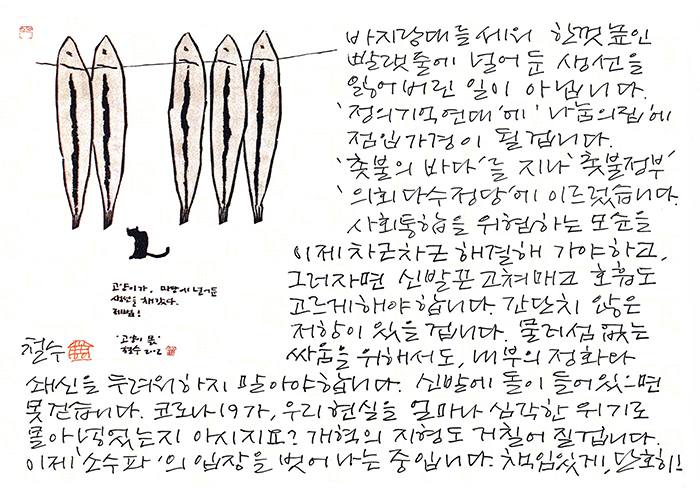 바지랑대를 세워 한껏 높인
빨랫줄에 널어 둔 생선을
잃어버린 일이 아닙니다.
'정의기억연대'에 '나눔의집'에
점입가경이 될겁니다.
'촛불의 바다'를 지나 '촛불정부'
'의회다수정당'에 이르렀습니다.
사회통합을 위협하는 모순을
이제 차근차근 해결해 가야하고,
그러자면 신발끈 고쳐매고 호흡도
고르게해야합니다. 간단치 않은
저항이 있을 겁니다. 물러섬 없는
싸움을 위해서도, 내부의 정화와
쇄신을 두려워하지 말아야합니다. 신발에 돌이 들어있으면
못걷습니다. 코로나19가, 우리현실을 얼마나 심각한 위기로
몰아넣었는지 아시지요? 개혁의 지형도 거칠어 질겁니다.
이제 '소수파'의 입장을 벗어나는 중입니다. 책임있게, 단호히!
고양이가, 마당에 널어둔
생선을 채갔다.
제법!
철수